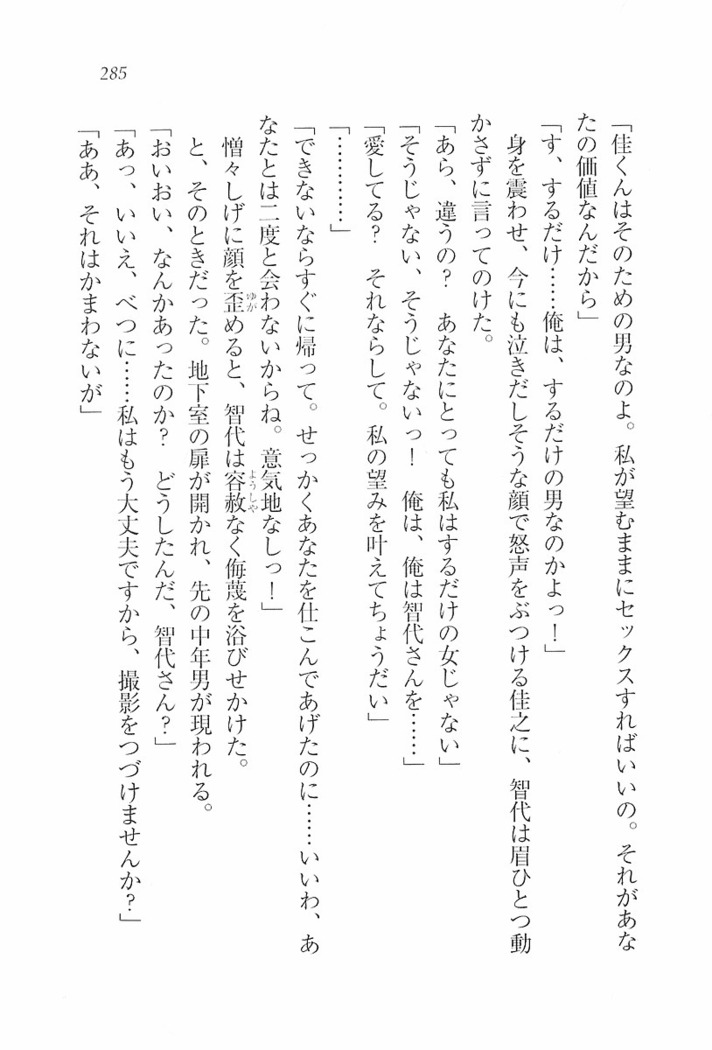 285
「佳くんはそのための男なのよ。私が望むままにセックスすればいいの。それがあな
たの価値なんだから」
「す、するだけ……俺は、するだけの男なのかよっ！」
身を震わせ、今にも泣きだしそうな顔で怒声をぶつける佳之に、智代は眉ひとつ動
かさずに言ってのけた。
「あら、違うの？　あなたにとっても私はするだけの女じゃない」
「そうじゃない、そうじゃないっ！　俺は、俺は智代さんを……」
「愛してる？　それならして。私の望みを叶えてちょうだい」
「…………」
「できないならすぐに帰って。せっかくあなたを仕こんであげたのに……いいわ、あ
なたとは二度と会わないからね。意気地なしっ！」
憎々しげに顔を歪めると、智代は容赦なく侮蔑を浴びせかけた。
ゆが
ようしや
と、そのときだった。地下室の扉が開かれ、先の中年男が現われる。
「おいおい、なんかあったのか？　どうしたんだ、智代さん？」
「あっ、いいえ、べつに……私はもう大丈夫ですから、撮影をつづけませんか？」
「ああ、それはかまわないが」